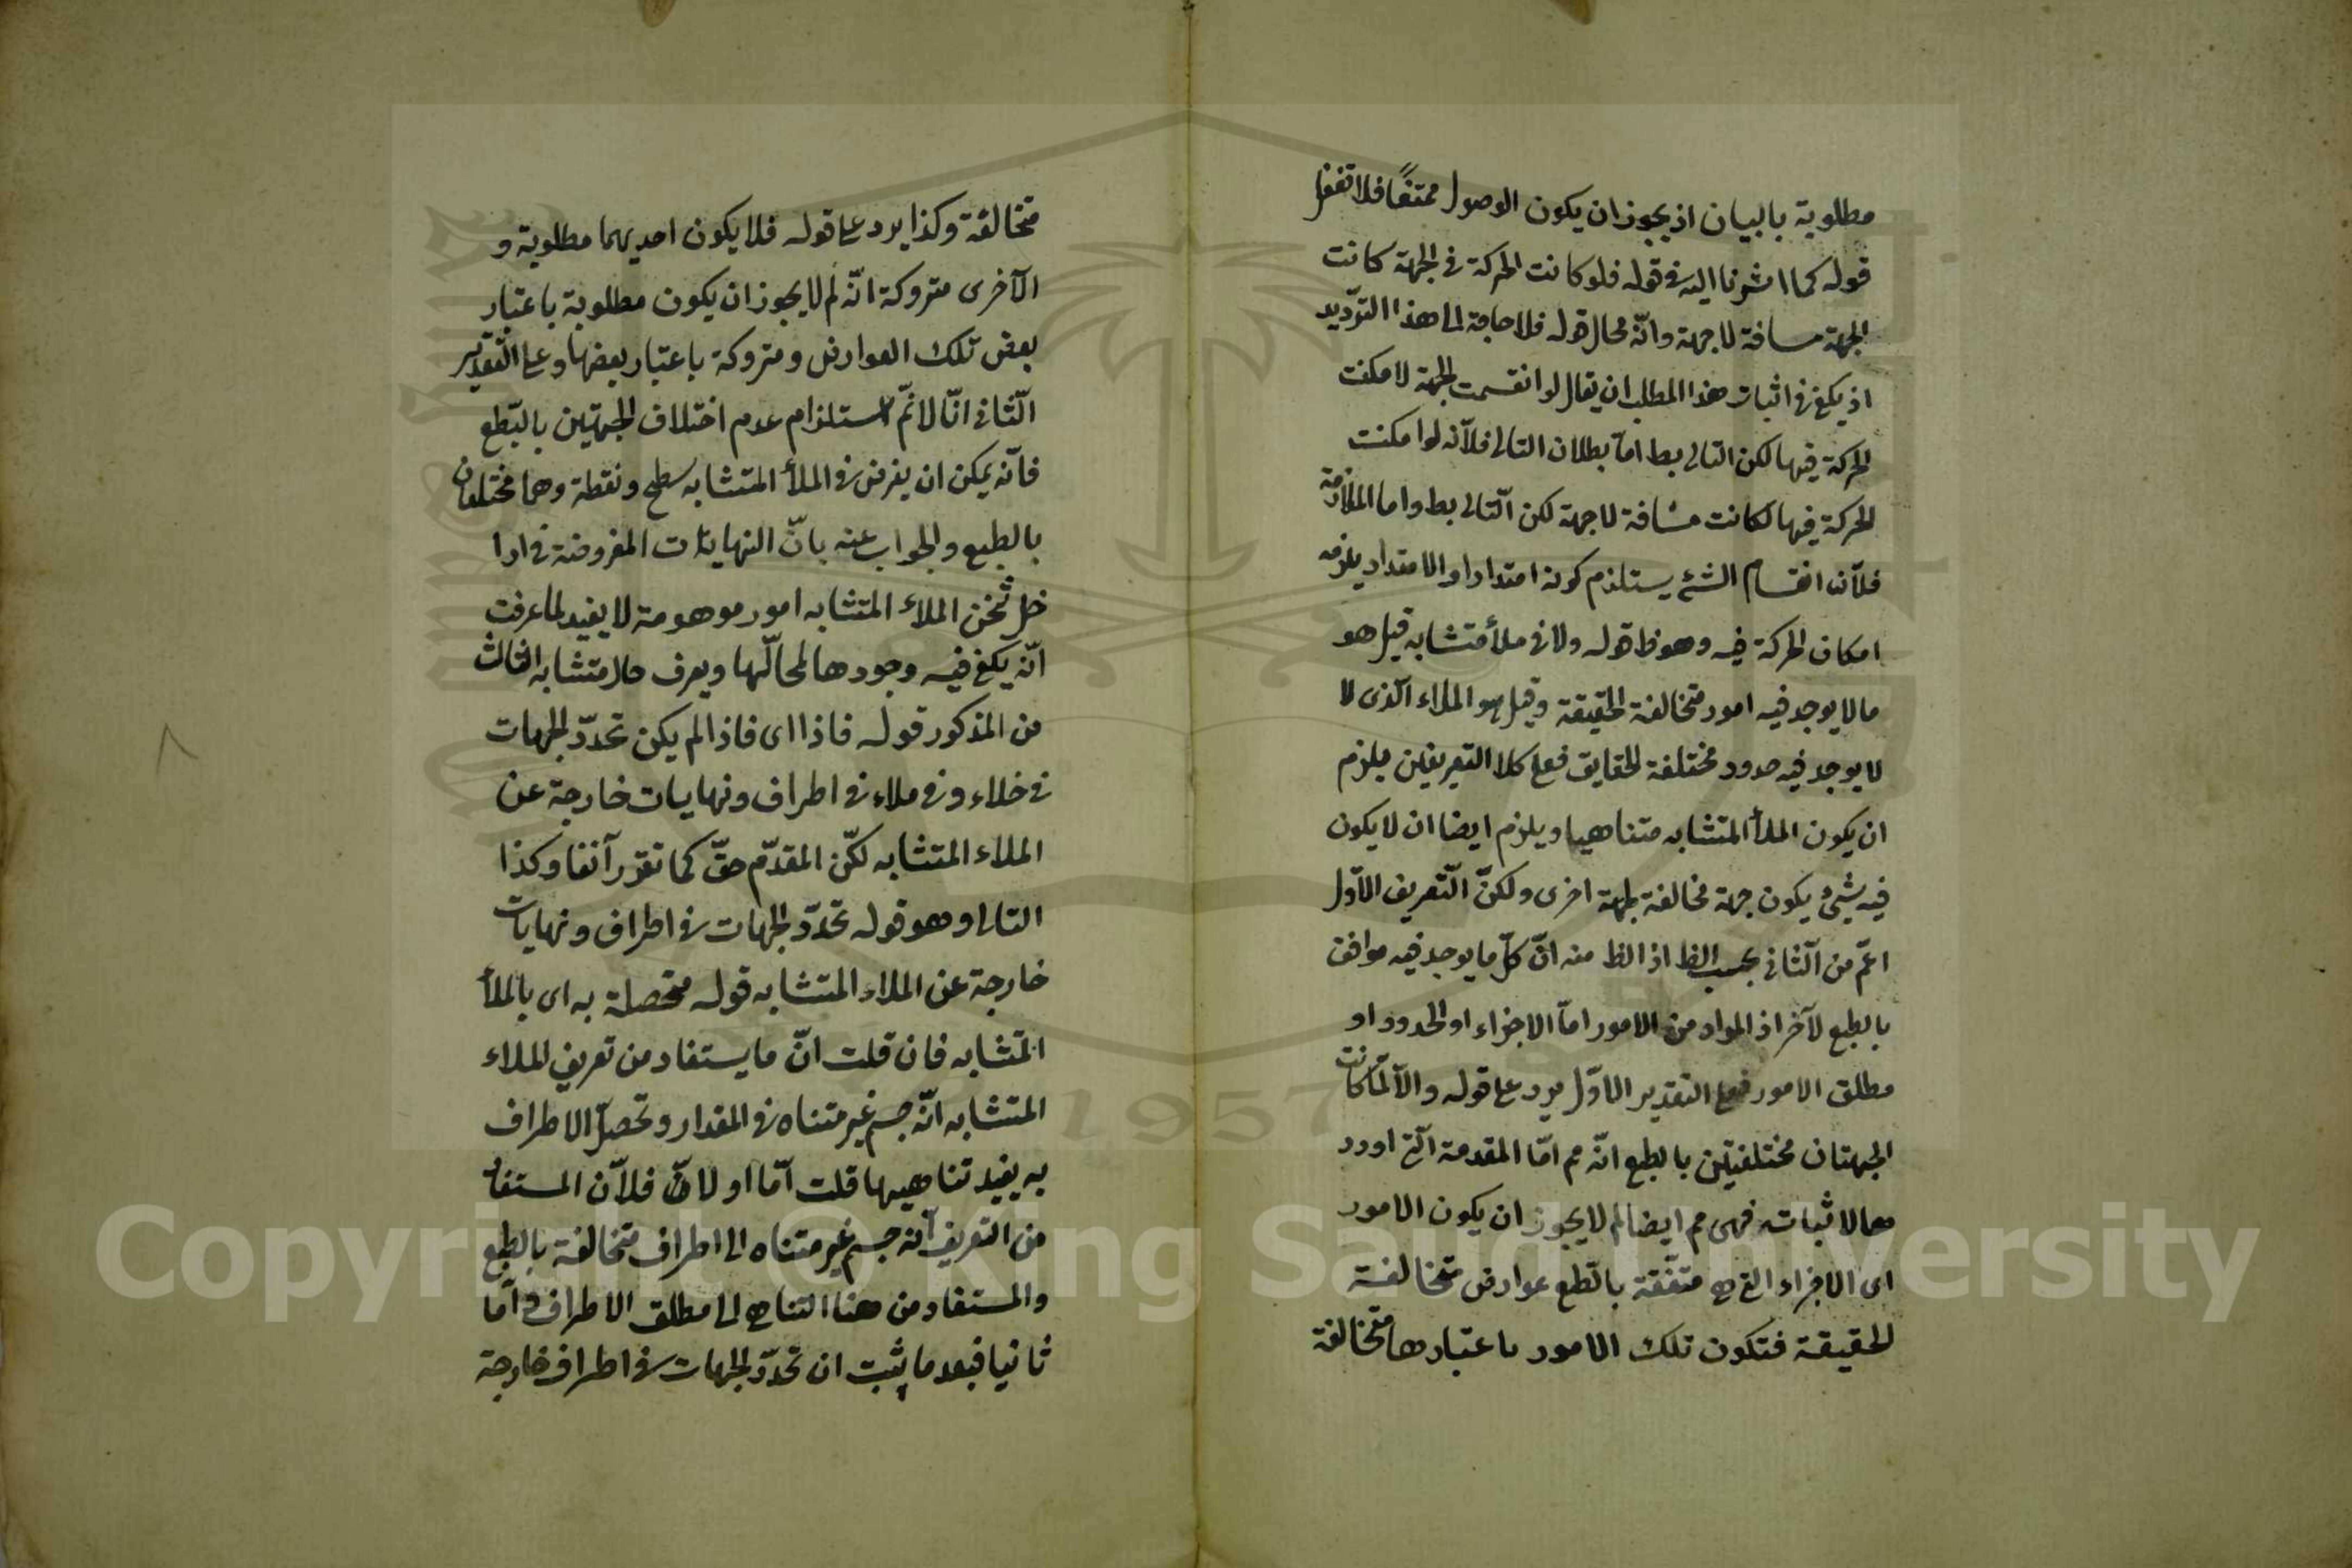 مطلوبة بالبيان اذ يجوز ان يكون الوصول ممتنعًا فلا تغفل
قوله كما اشرنا اليه فى قوله فلو كانت الحركة فى الجهة كانت
الجهة مسافة لا جهة وانّه محال قوله فلا حاجة الى هذا التّرديد
اذ يكفى فى اثبات هذا المطلب ان يقال لو انقسمت الجهة لامكنت
الحركة فيها لكن التالى بط امّا بطلان التالى فلأنّه لو امكنت
الحركة فيها لكانت مسافة لا جهة لكن التّالى بط واما الملازمة
فلأنّ انقسام الشئ يستلزم كونه امتدادا والامتداد يلزمه
امكان الحركة فيه وهو ظ قوله ولا فى ملأ متشابه قيل هو
مالا يوجد فيه امور متخالفة الحقيقة وقيل هو الملاء الّذى لا
لا يوجد فيه حدود مختلفة الحقايق فعلى كلا التعريفين يلزم
ان يكون الملأ المتشابه متناهيا ويلزم ايضا ان لا يكون
فيه شئ يكون جهة مخالفة لجهة اخرى ولكنّ التّعريف الاوّل
اعمّ من الثّانى بحسب الظ اذ الظ منه انّ كلّ ما يوجد فيه موافق
بالطبع لآخر اذ المراد من الامور امّا الاجزاء او الحدود او
مطلق الامور فعلى التقدير الاوّل يرد على قوله والّا لمّا كانت
الجهتان مختلفتين بالطبع انّه مم امّا المقدمة الّتى اورد
ها لاثباته فهى مم ايضا لم لا يجوز ان يكون الامور
اى الاجزاء التى هى متّفقة بالطّبع عوارض متخالفة
الحقيقة فتكون تلك الامور باعتبارها متخالفة
متخالفة وكذا يرد على قوله فلا يكون احديهما مطلوبة و
الآخرى متروكة انّه لم لا يجوز ان يكون مطلوبة باعتبار
بعض تلك العوارض ومتروكة باعتبار بعضها وعلى التّقدير
الثّانى انّا لا نمّ استلزام عدم اختلاف الجهتين بالطّبع
فانّه يمكن ان يفرض فى الملأ المتشابه سطح ونقطة وهما مختلفان
بالطبع والجواب عنه بانّ النهايات المفروضة فى ادا
خل ثخن الملاء المتشابه امور موهومة لا يفيد لما عرفت
انّه يكفى فيه وجودها لمحالّها ويعرف حال متشابه الثالث
من المذكور قوله فاذا اى فاذا لم يكن تحدّد الجهات
فى خلاء و فى ملاء فى اطراف ونهايات خارجة عن
الملاء المتشابه لكنّ المقدّم حقّ كما تقرّر آنفا وكذا
التالى وهو قوله تحدّد الجهات فى اطراف ونهايات
خارجة عن الملاء المتشابه قوله متحصلة به اى بالملأ
المتشابه فان قلت انّ ما يستفاد من تعريف الملاء
المتشابه انّه جسم غير متناه فى المقدار وتحصّل الاطراف
به يفيد تناهيها قلت امّا اولا فلأنّ المستفاد
من التعريف انّه جسم غير متناه الى اطراف متخالفة بالطبع
والمستفاد من هنا التناهى الى مطلق الاطراف وامّا
ثانيا فبعد ما يثبت ان تحدّد الجهات فى اطراف خارجة
Copyright © King Saud University
1957